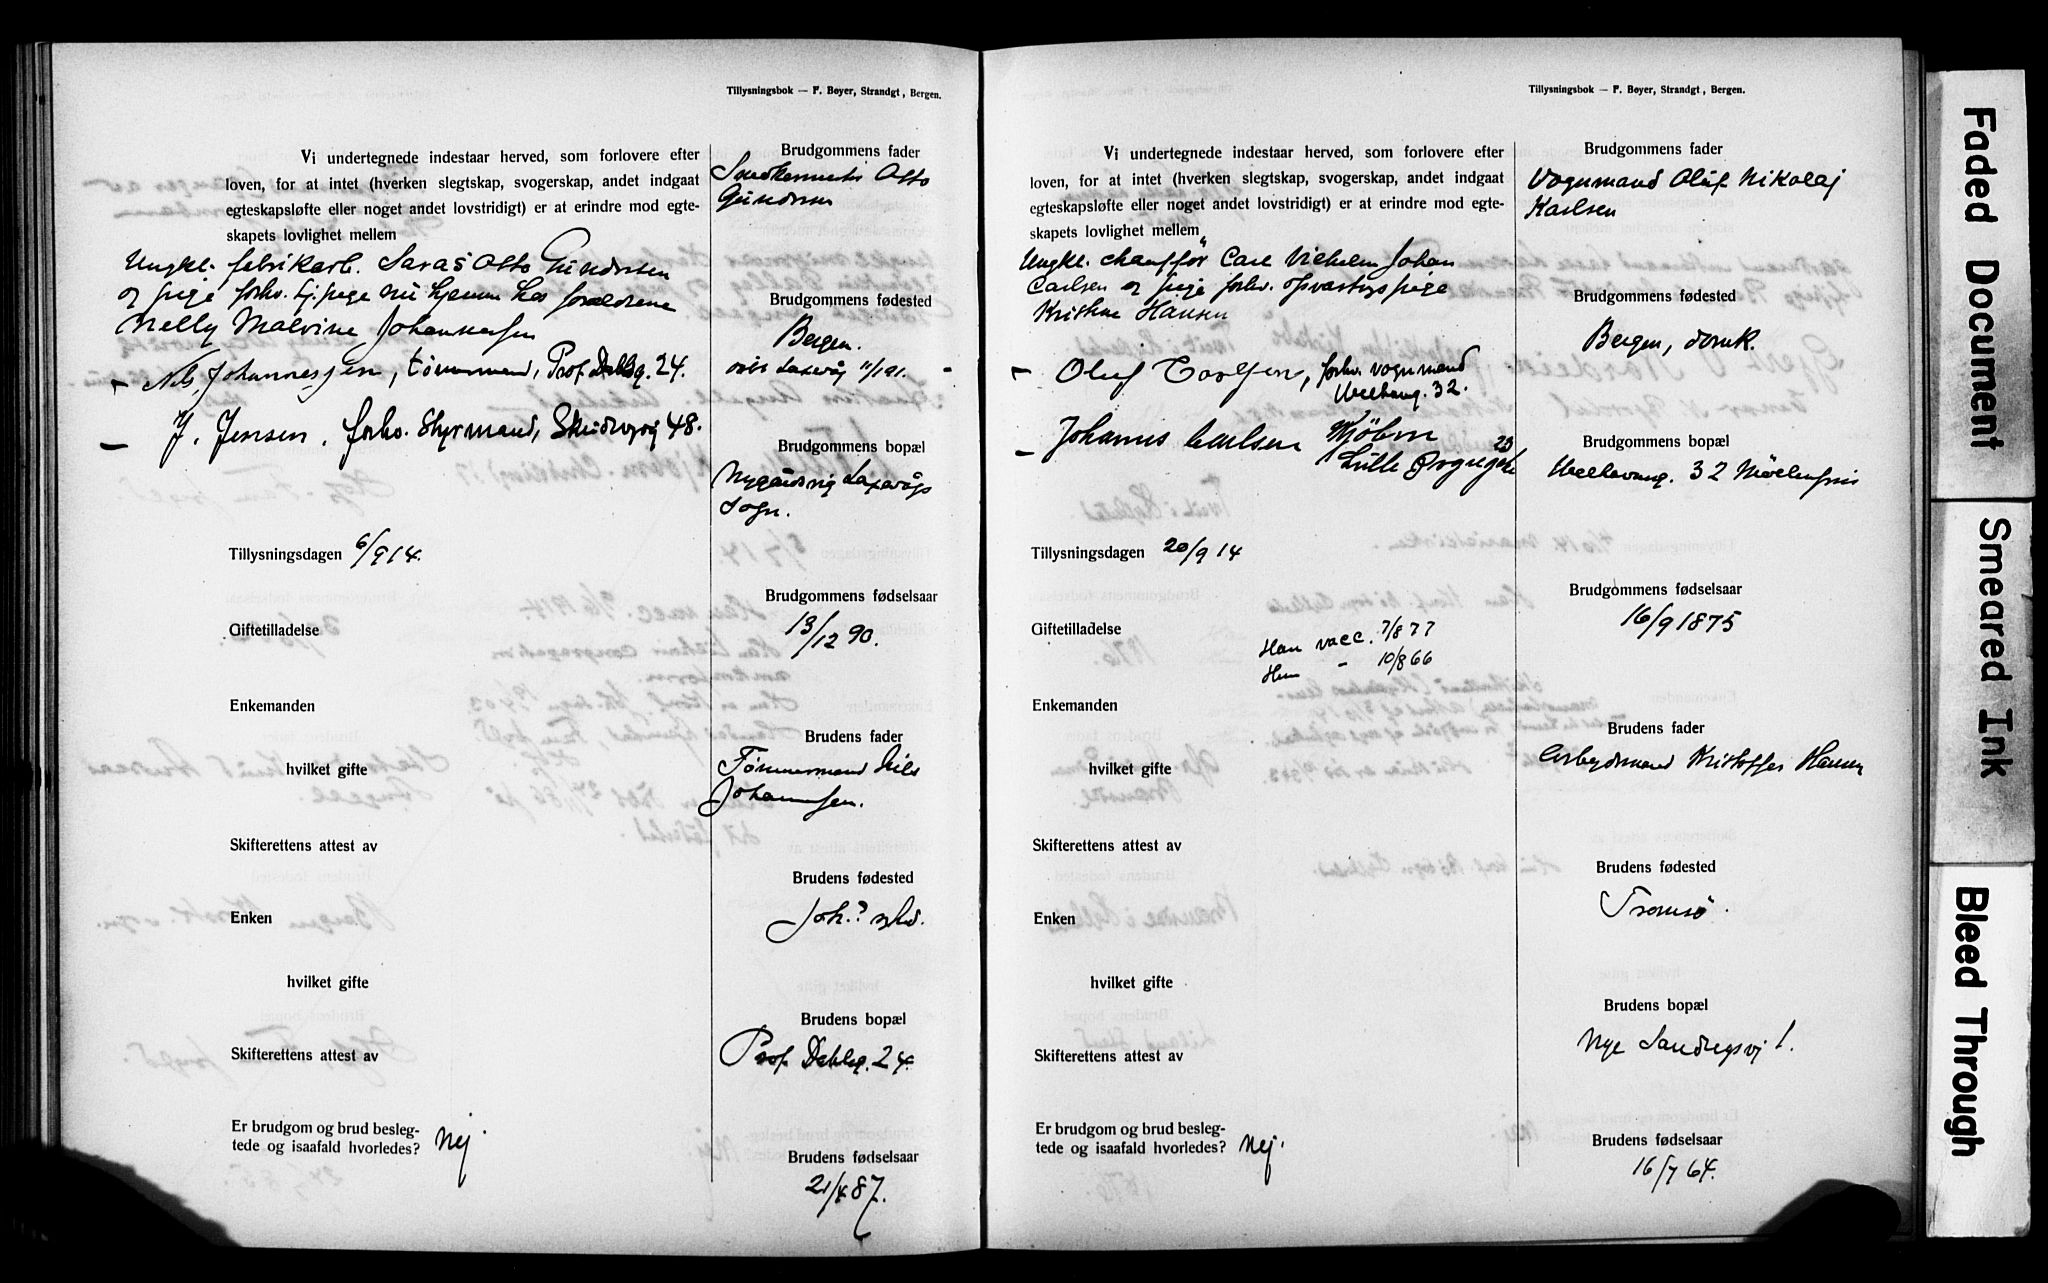 Tillysningsbok — F. Beyer, Strandgt, Bergen.
Vi undertegnede indestaar herved, som forlovere efter
loven, for at intet (hverken slegtskap, svogerskap, andet indgaat
egteskapsløfte eller noget andet lovstridigt) er at erindre mod egte-
skapets lovlighet mellem
Ungk. fabrikarb. Otto Gundersen
og pige forhv. tj.pige nu hjemme hos forældrene
Nelly Malvine Johannessen
Nils Johannessen, tømmermand, Prof. Dahlsg. 24.
J. Jensen, forhv. Styrmand, 48.
Tillysningsdagen 6/9 14.
Giftetilladelse
Enkemanden
hvilket gifte
Skifterettens attest av
Enken
hvilket gifte
Skifterettens attest av
Er brudgom og brud besleg-
tede og isaafald hvorledes? Nej.
Brudgommens fader
Snedkermester Otto
Gundersen
Brudgommens fødested
Bergen.
Laxevåg
Brudgommens bopæl
Nygårdsvig Laxevågs
Sogn.
Brudgommens fødselsaar
13/12 90.
Brudens fader
Tømmermand Nils
Johannessen.
Brudens fødested
Joh.?
Brudens bopæl
Prof Dahlsg. 24.
Brudens fødselsaar
21/4 87.
Tillysningsbok — F. Beyer, Strandgt, Bergen.
Vi undertegnede indestaar herved, som forlovere efter
loven, for at intet (hverken slegtskap, svogerskap, andet indgaat
egteskapsløfte eller noget andet lovstridigt) er at erindre mod egte-
skapets lovlighet mellem
Ungk. chauffør Carl Vilhelm Johan
Carlsen og pige forhv. opvartngspige
Kristine Hansen
Oluf Carlsen, forhv. vognmand
32.
Johannes Carlsen Kjøbm
Lille Øvregade 23
Tillysningsdagen 20/9 14
Giftetilladelse
Han vacc. 7/8 77
Hun — 10/8 66
Enkemanden
hvilket gifte
Skifterettens attest av
Enken
hvilket gifte
Skifterettens attest av
Er brudgom og brud besleg-
tede og isaafald hvorledes? Nej.
Brudgommens fader
Vognmand Oluf Nikolaj
Karlsen
Brudgommens fødested
Bergen, domk.
Brudgommens bopæl
32 Møhlenpris
Brudgommens fødselsaar
16/9 1875
Brudens fader
Arbeydsmand Kristoffer Hansen
Brudens fødested
Tromsö.
Brudens bopæl
Nye Sandvigsvj 1.
Brudens fødselsaar
16/7 64.
Faded Document
Smeared Ink
Bleed Through